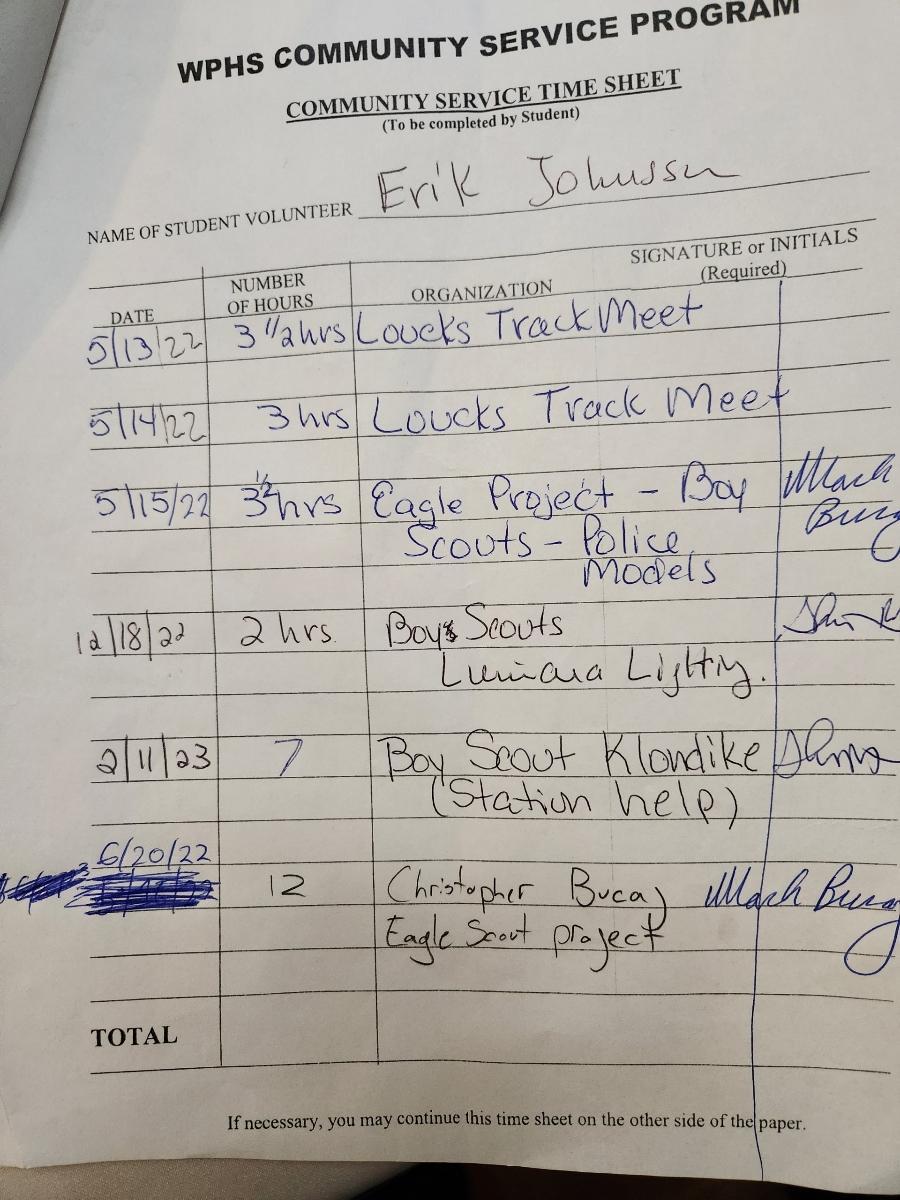 WPHS COMMUNITY SERVICE PROGRAM
COMMUNITY SERVICE TIME SHEET
(To be completed by Student)
NAME OF STUDENT VOLUNTEER Erik Johnssn
DATE NUMBER OF HOURS ORGANIZATION SIGNATURE or INITIALS (Required)
5/13/22 3 1/2 hrs Loucks Track Meet
5/14/22 3 hrs Loucks Track Meet
5/15/22 3 1/2 hrs Eagle Project - Boy
Scouts - Police
Models
12/18/22 2 hrs. Boy Scouts
Luminara Lighting.
2/11/23 7 Boy Scout Klondike
(Station help)
6/20/22
12 Christopher Bucay
Eagle Scout project
TOTAL
If necessary, you may continue this time sheet on the other side of the paper.